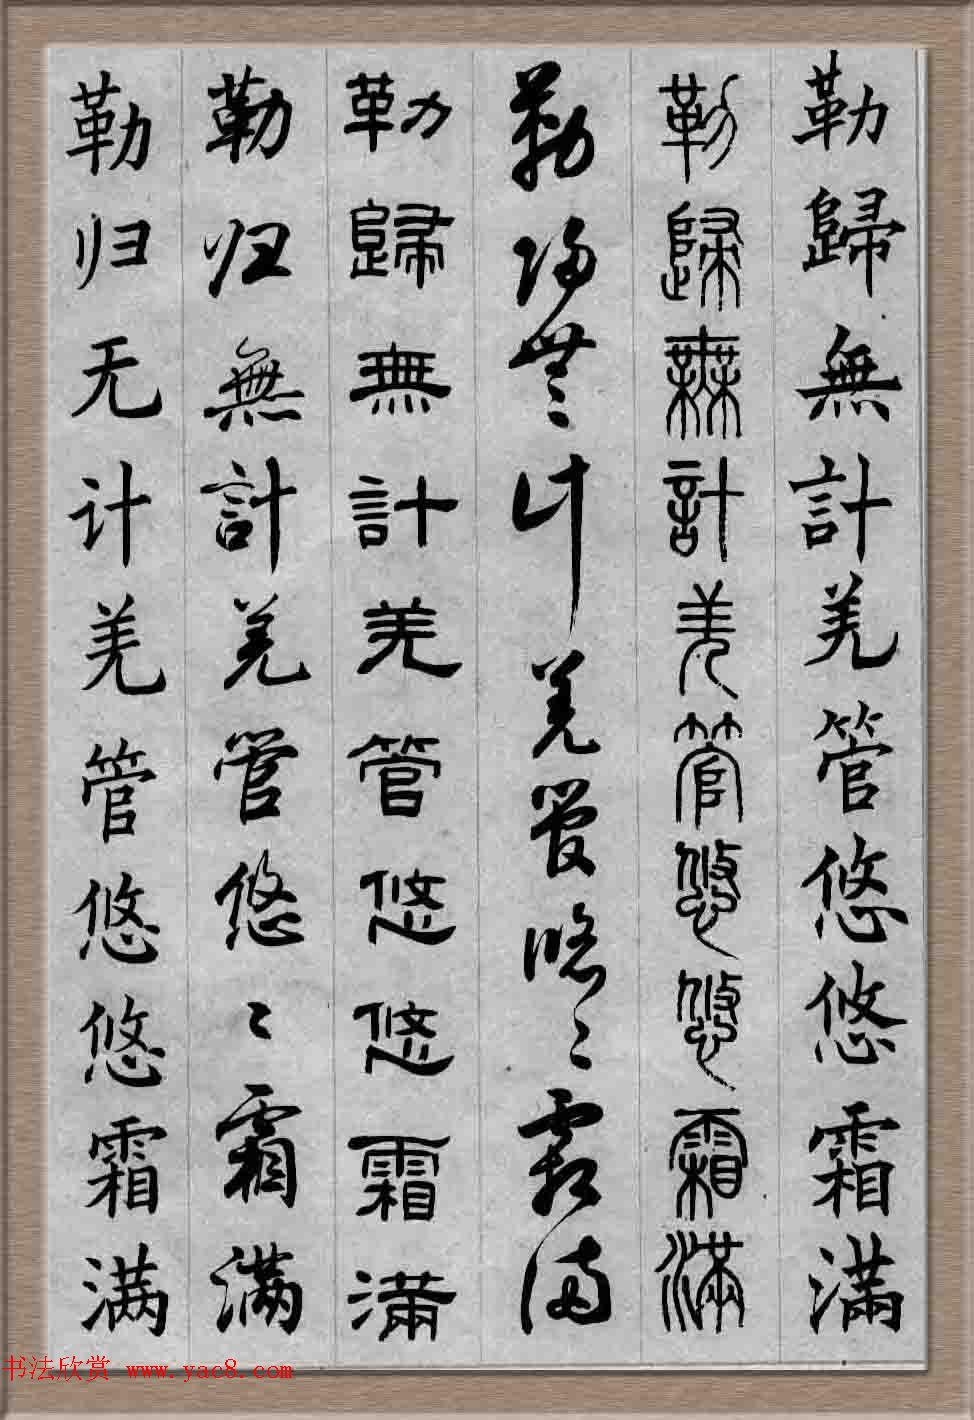 勒歸無計羌管悠悠霜滿
勒歸無計羌管悠悠霜滿
勒歸無計羌管悠〻霜滿
勒歸無計羌管悠悠霜滿
勒归無計羌管悠〻霜滿
勒归无计羌管悠悠霜满
书法欣赏 www.yac8.com